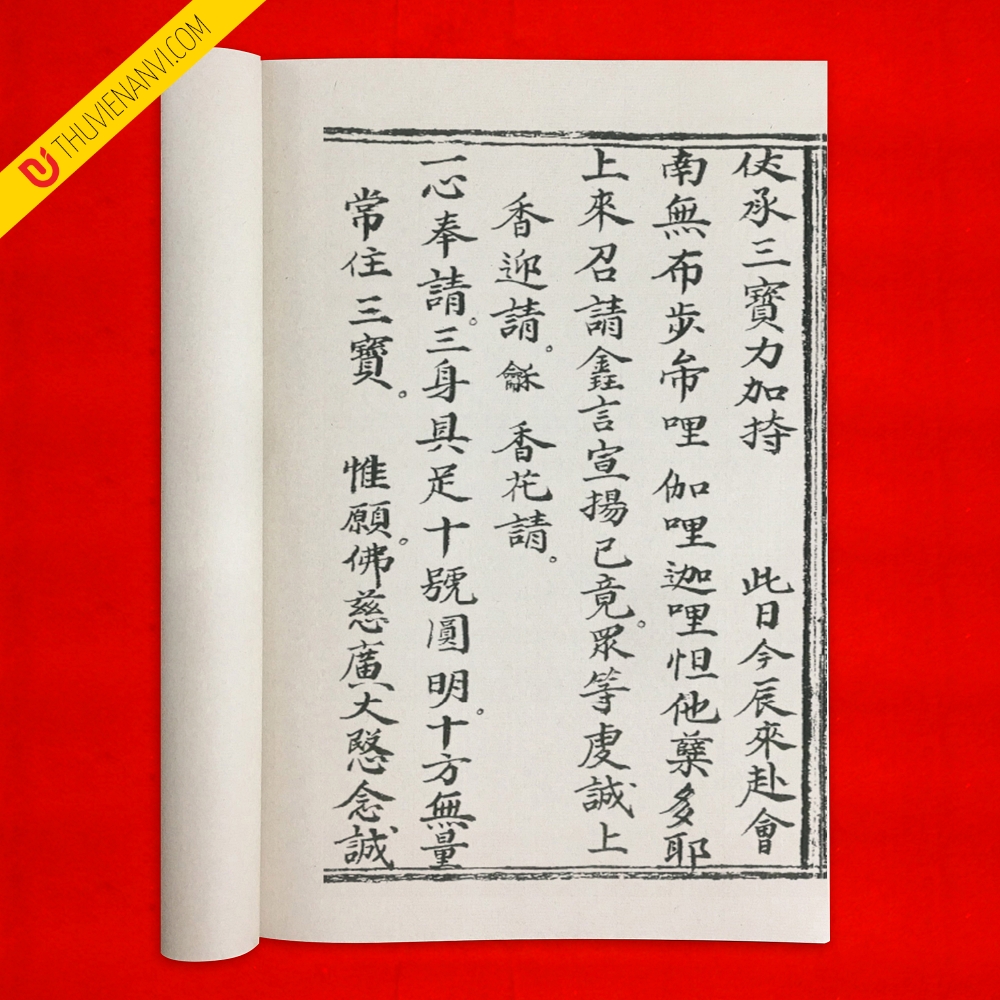 仗承三寶力加持　此日今辰來赴會
南無布步帝哩　伽哩迦哩怛他蘖多耶
上來召請金言宣揚已竟。眾等虔誠上
香迎請。龢　香花請。
一心奉請。三身具足十號圓明。十方無量
常住三寶。　惟願。佛慈廣大愍念誠
THUVIENANVI.COM